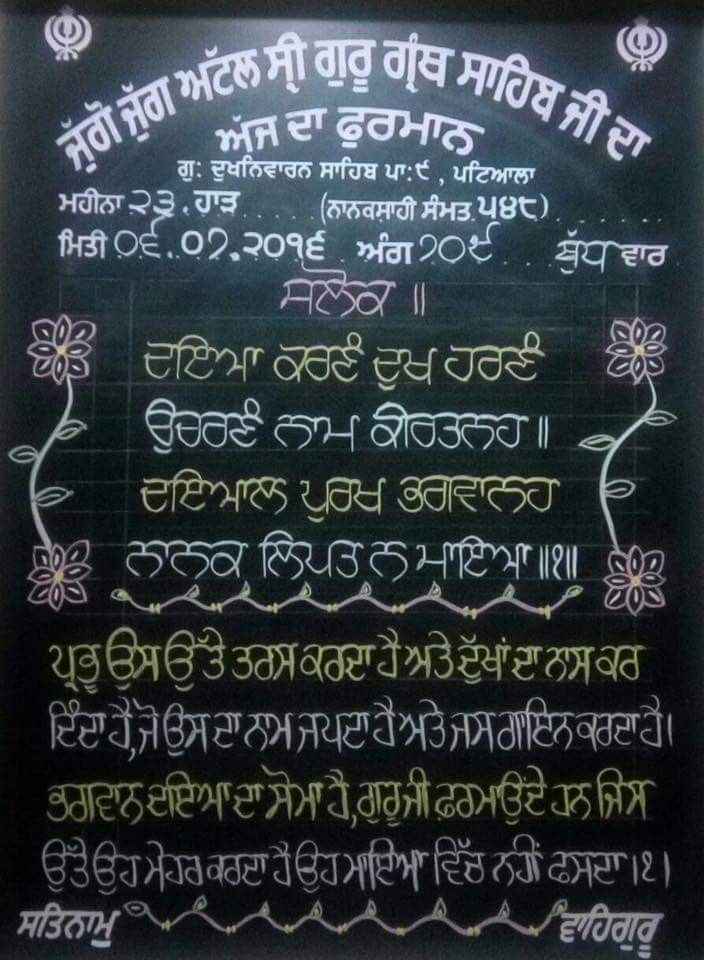 ਜੁੱਗੋ ਜੁੱਗ ਅਟੱਲ ਸ੍ਰੀ ਗੁਰੂ ਗ੍ਰੰਥ ਸਾਹਿਬ ਜੀ ਦਾ
ਅੱਜ ਦਾ ਫੁਰਮਾਨ
ਗੁ: ਦੁਖਨਿਵਾਰਨ ਸਾਹਿਬ ਪਾ:੯ , ਪਟਿਆਲਾ
ਮਹੀਨਾ ੨੩. ਹਾੜ (ਨਾਨਕਸ਼ਾਹੀ ਸੰਮਤ ੫੪੮)
ਮਿਤੀ ੦੬.੦੭.੨੦੧੬ ਅੰਗ ੭੦੯ ਬੁੱਧ ਵਾਰ
ਸਲੋਕ ॥
ਦਇਆ ਕਰਣੰ ਦੁਖ ਹਰਣੰ
ਉਚਰਣੰ ਨਾਮ ਕੀਰਤਨਹ ॥
ਦਇਆਲ ਪੁਰਖ ਭਗਵਾਨਹ
ਨਾਨਕ ਲਿਪਤ ਨ ਮਾਇਆ ॥੧॥
ਪ੍ਰਭੂ ਉਸ ਉੱਤੇ ਤਰਸ ਕਰਦਾ ਹੈ ਅਤੇ ਦੁੱਖਾਂ ਦਾ ਨਾਸ ਕਰ
ਦਿੰਦਾ ਹੈ, ਜੋ ਉਸ ਦਾ ਨਾਮ ਜਪਦਾ ਹੈ ਅਤੇ ਜਸ ਗਾਇਨ ਕਰਦਾ ਹੈ।
ਭਗਵਾਨ ਦਇਆ ਦਾ ਸੋਮਾ ਹੈ, ਗੁਰੂ ਜੀ ਫ਼ਰਮਾਉਂਦੇ ਹਨ ਜਿਸ
ਉੱਤੇ ਉਹ ਮੇਹਰ ਕਰਦਾ ਹੈ ਉਹ ਮਾਇਆ ਵਿੱਚ ਨਹੀਂ ਫਸਦਾ।੧।
ਸਤਿਨਾਮੁ ਵਾਹਿਗੁਰੂ